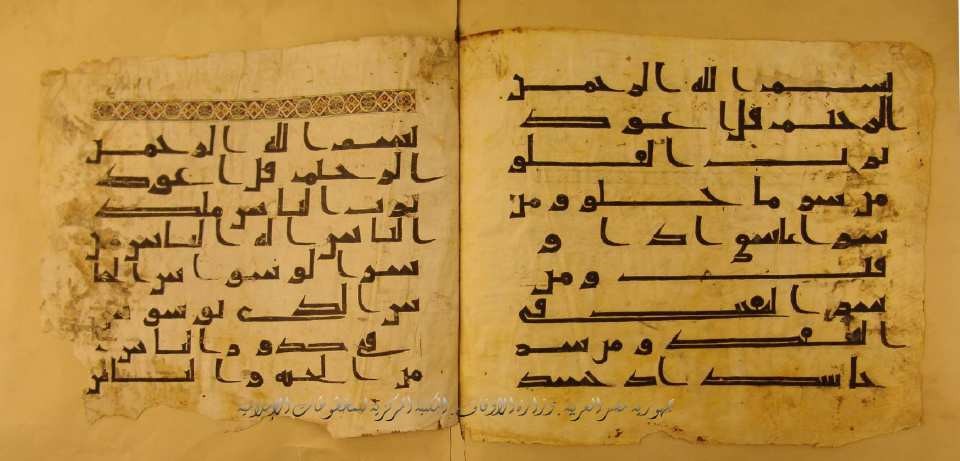 بسم الله الرحمن
الرحيم قل اعوذ
برب الفلق
من شر ما خلق و من
شر غاسق اذا و
قب و من
شر النفثت في
العقد و من شر
حاسد اذا حسد
بسم الله الرحمن
الرحيم قل اعوذ
برب الناس ملك
الناس اله الناس من
شر الوسواس الخنا
س الذي يوسوس
في صدور الناس
من الجنة و الناس
جمهورية مصر العربية . وزارة الأوقاف . المكتبة المركزية للمخطوطات الإسلامية